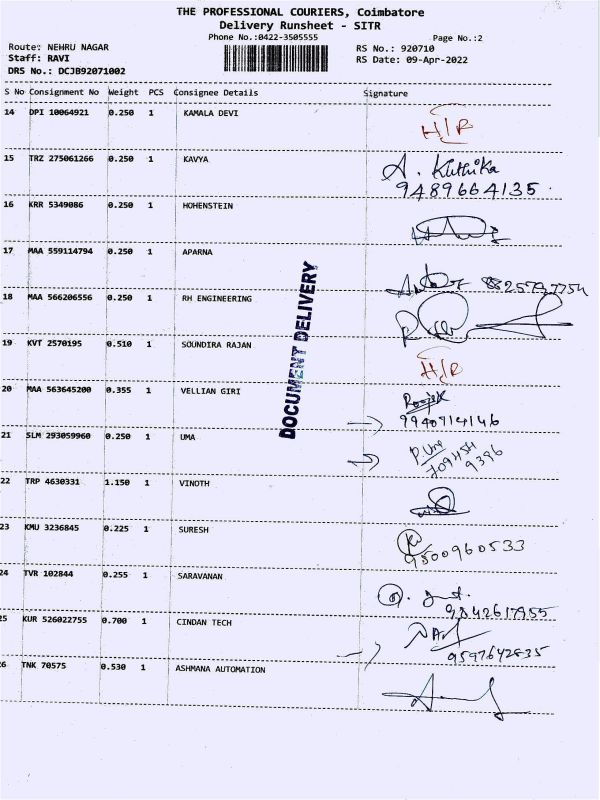 THE PROFESSIONAL COURIERS, Coimbatore
Delivery Runsheet - SITR
Phone No.:0422-3505555
Page No.:2
Route: NEHRU NAGAR
RS No.: 920710
Staff: RAVI
RS Date: 09-Apr-2022
DRS No.: DCJB92071002
S No Consignment No Weight PCS Consignee Details Signature
14 DPI 10064921 0.250 1 KAMALA DEVI
H/R
15 TRZ 275061266 0.250 1 KAVYA
A.
9489664135
16 KRR 5349086 0.250 1 HOHENSTEIN
17 MAA 559114794 0.250 1 APARNA
18 MAA 566206556 0.250 1 RH ENGINEERING
19 KVT 2570195 0.510 1 SOUNDIRA RAJAN
H/R
20 MAA 563645200 0.355 1 VELLIAN GIRI
9940714146
21 SLM 293059960 0.250 1 UMA
P. Uma
709454
9396
22 TRP 4630331 1.150 1 VINOTH
23 KMU 3236845 0.225 1 SURESH
9500960533
24 TVR 102844 0.255 1 SARAVANAN
9842617955
25 KUR 526022755 0.700 1 CINDAN TECH
9597642835
26 TNK 70575 0.530 1 ASHMANA AUTOMATION
DOCUMENT DELIVERY